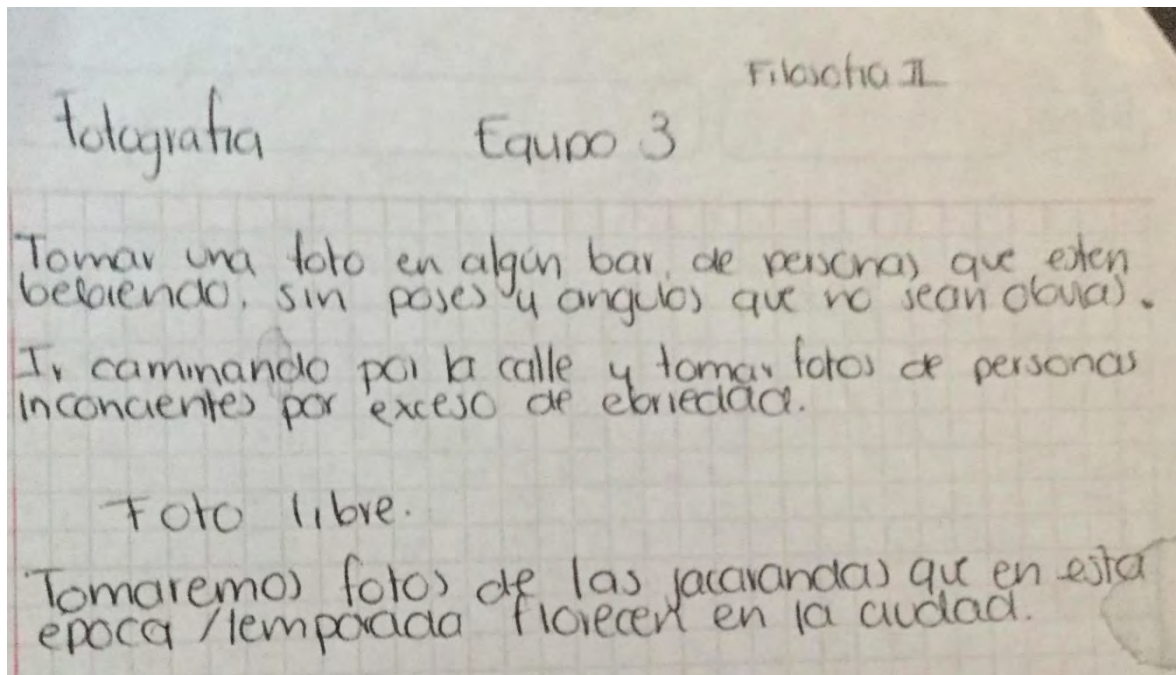 Filosofia II
Fotografia Equipo 3
Tomar una foto en algún bar, de personas que esten
bebiendo, sin poses y angulos que no sean obvias.
Ir caminando por la calle y tomar fotos de personas
inconcientes por exceso de ebriedad.
Foto libre.
Tomaremos fotos de las jacarandas que en esta
epoca / temporada florecen en la ciudad.